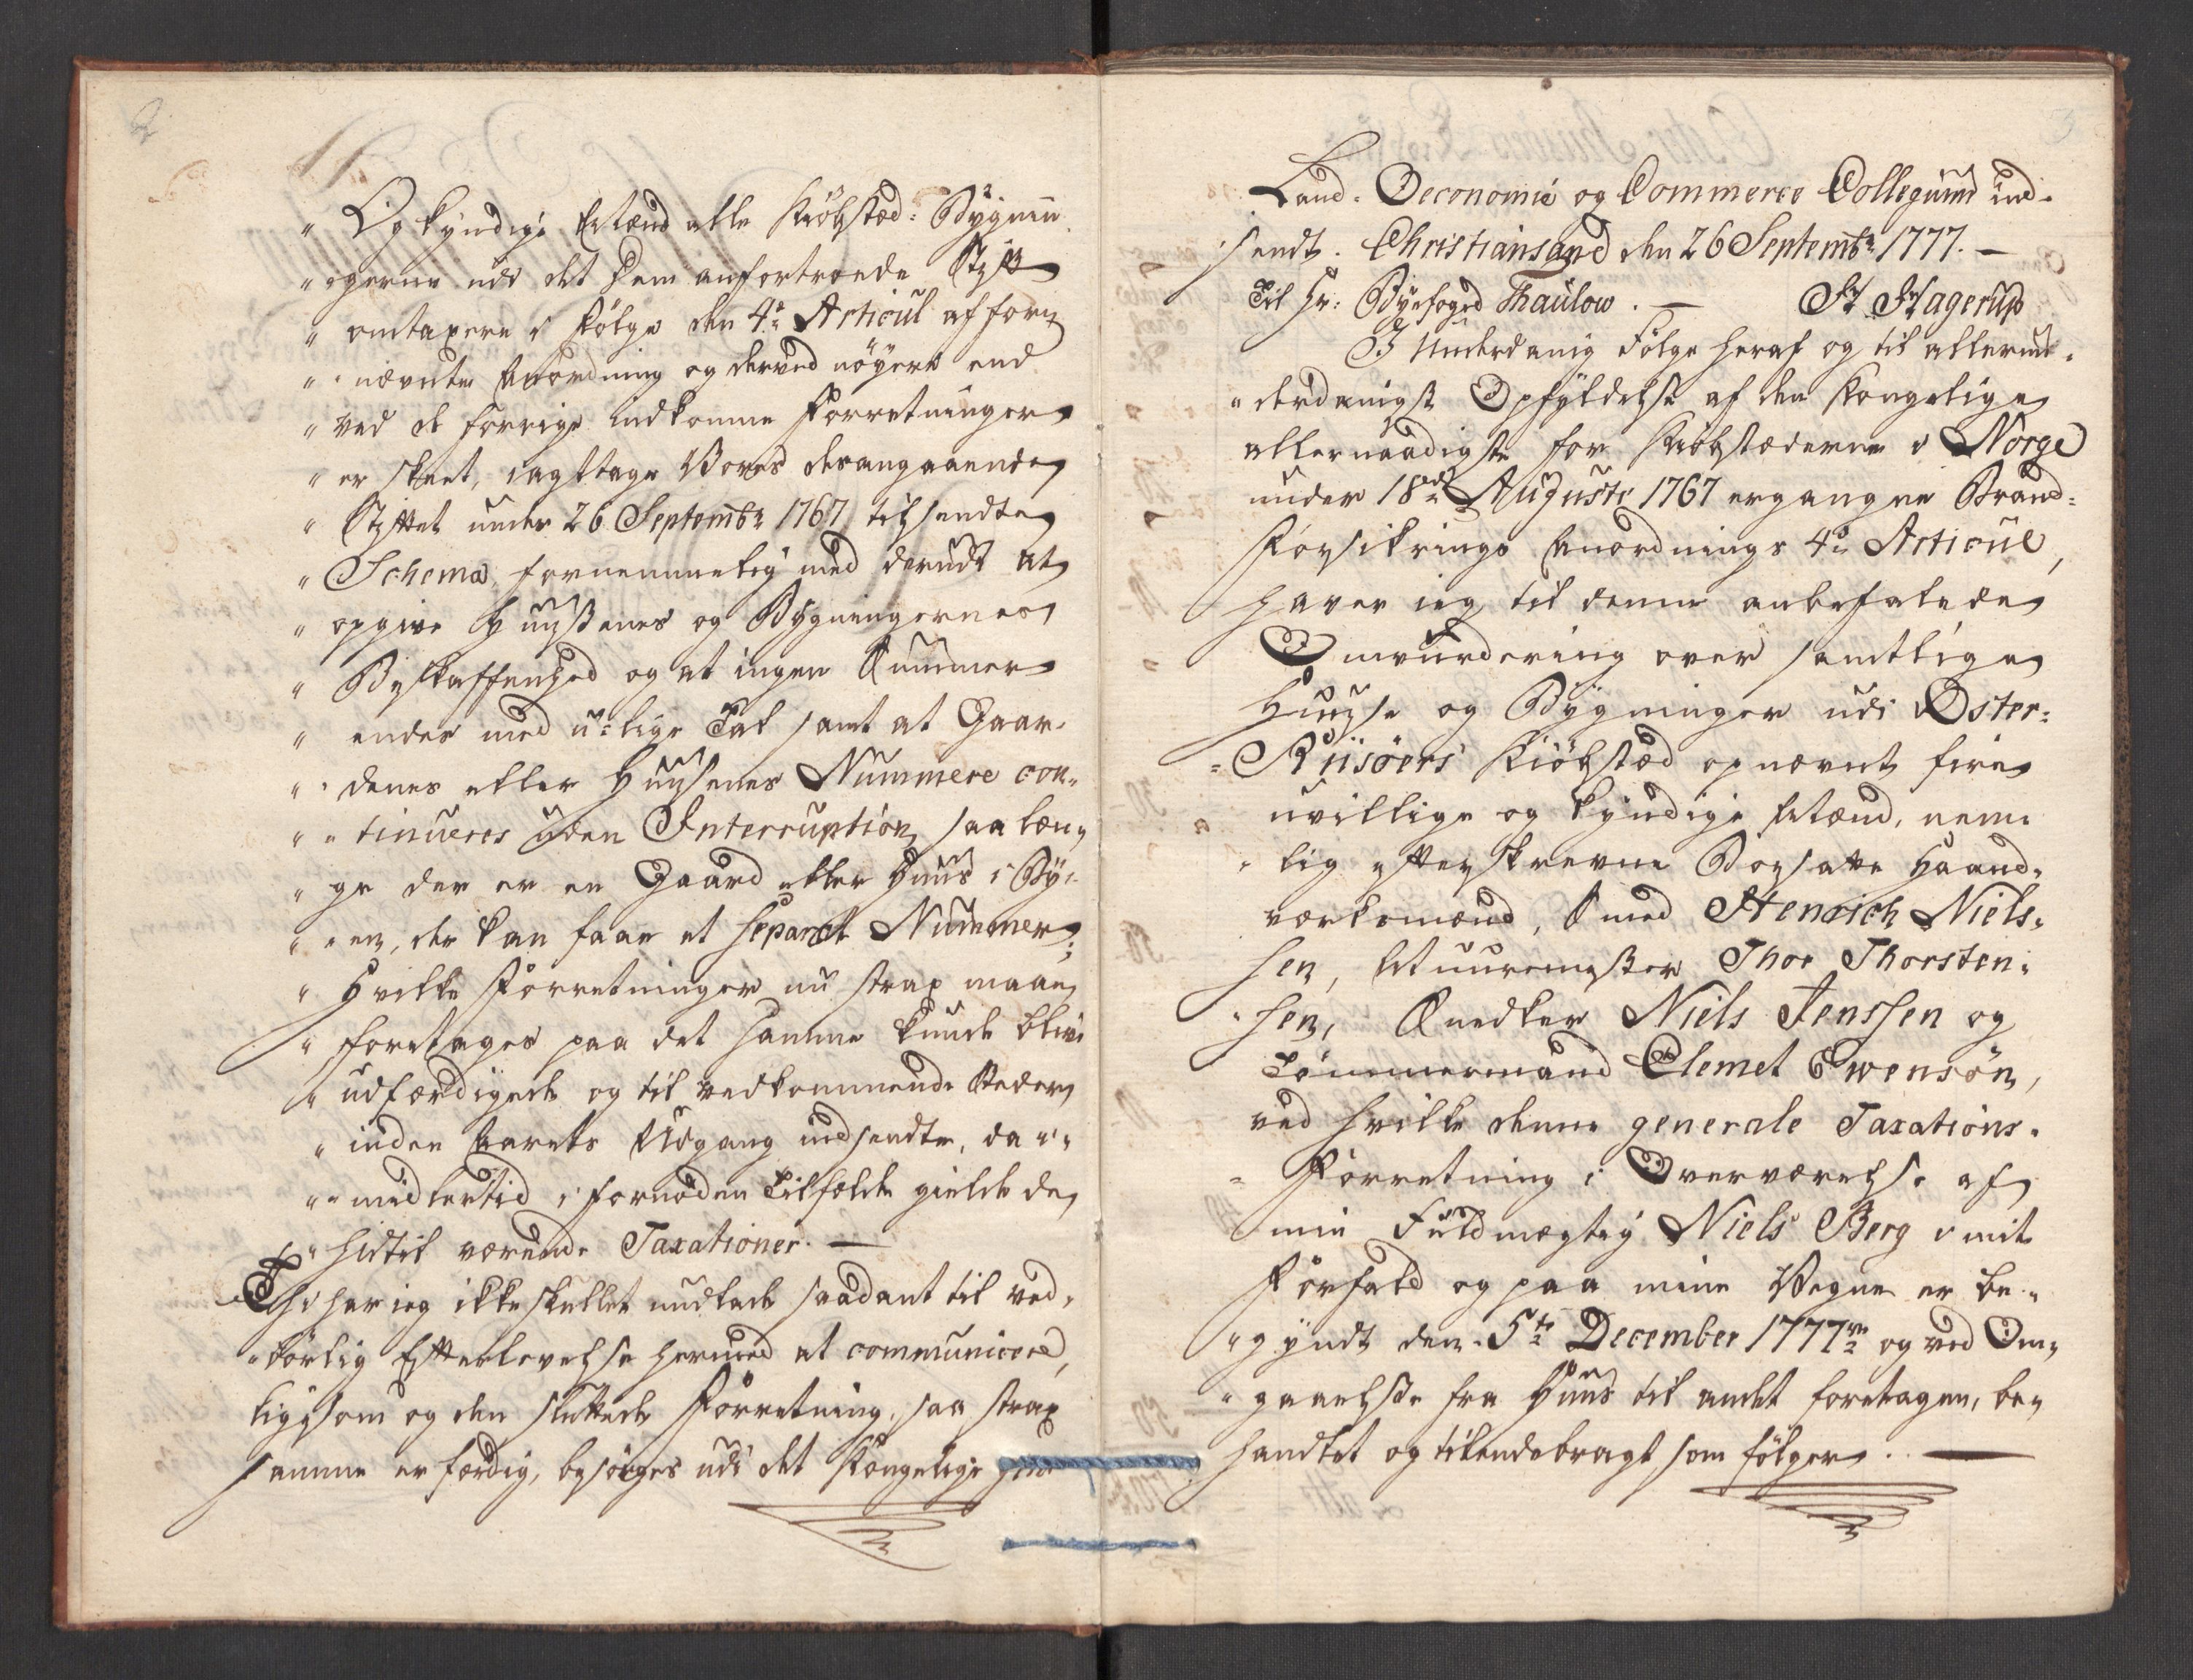 2
" Og kyndige Mænd alle Kiøbstæd-Bygnin
" gerne udi det Dem anfortroede Stift
" omtaxere i Følge den 4de Articul af forn
" nævnte Anordning og derved nöyere end
" ved de forrige indkomne Forretninger
" er skeet, iagttage Vores desangaaende
" Stiftet under 26 Septembr 1767 tilsendte
" Schema, fornemmelig med derudi at
" opgive Huusenes og Bygningernes
" Beskaffenhed og at ingen Summer
" endes med u-lige Tal samt at Gaar-
" denes eller Huusenes Nummere con-
" tinueres uden Interruption saa læn-
" ge der er en Gaard eller Huus i By-
" en, der kan faae et separat Nummer;
" Hvilke Forretninger nu strax maae
" foretages paa det samme kunde blive
" udfærdigede og til vedkommende Steder
" inden Aarets Udgang indsendte, da i-
" midlertid i fornöden Tilfælde gielde de
" hidtil værende Taxationer. —
Thi har ieg ikke skullet undlade saadant til ved-
börlig Efterlevelse herved at communicere,
ligesom og den sluttede Forretning, saa strax
samme er færdig, besörges udi det Kongelige Gen
3
Land- Oeconomie og Commerce Collegium ind-
sendt. Christiansand den 26 Septembr 1777. —
Til Hr: Byefoged Thaulow. — H Hagerup
I Underdanig Fölge heraf og til allerun-
derdanigst Opfyldelse af den Kongelige
allernaadigste for Kiöbstæderne i Norge
under 18de Augusti 1767 ergangne Brand-
Forsikrings Anordnings 4de Articul,
haver ieg til denne anbefalede
Omvurdering over samtlige
Huuse og Bygninger udi Öster-
Riisöers Kiöbstæd opnævnt fire
uvillige og kyndige Mænd, nem-
lig efterskrevne Boesatte Haand-
værksmænd, Smed Henrich Niels-
sen, Muurmester Thor Thorsten-
sen, Snedker Niels Jenssen og
Tömmermand Clemet Ewensön,
ved hvilke denne generale Taxations-
Forretning i Overværelse af
min Fuldmægtig Niels Berg i mit
Forfald og paa mine Vegne er be-
gyndt den 5te December 1777 og ved Om-
gaaelse fra Huus til andet foretagen, be-
handlet og tilendebragt som fölger. —